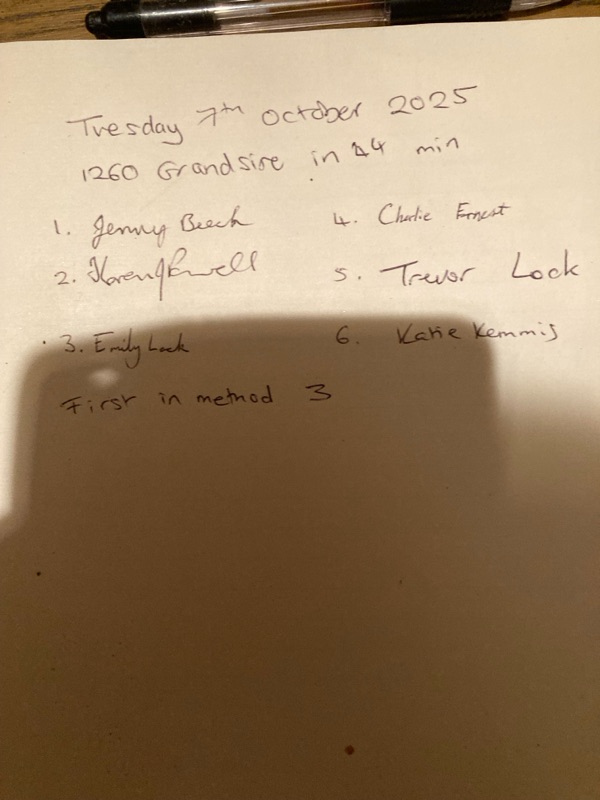 Tuesday 7th October 2025
1260 Grandsire in 44 min
1. Jenny Beech
4. Charlie Ernest
2. Karen J Powell
5. Trevor Lock
3. Emily Lock
6. Katie Kemmis
First in method 3